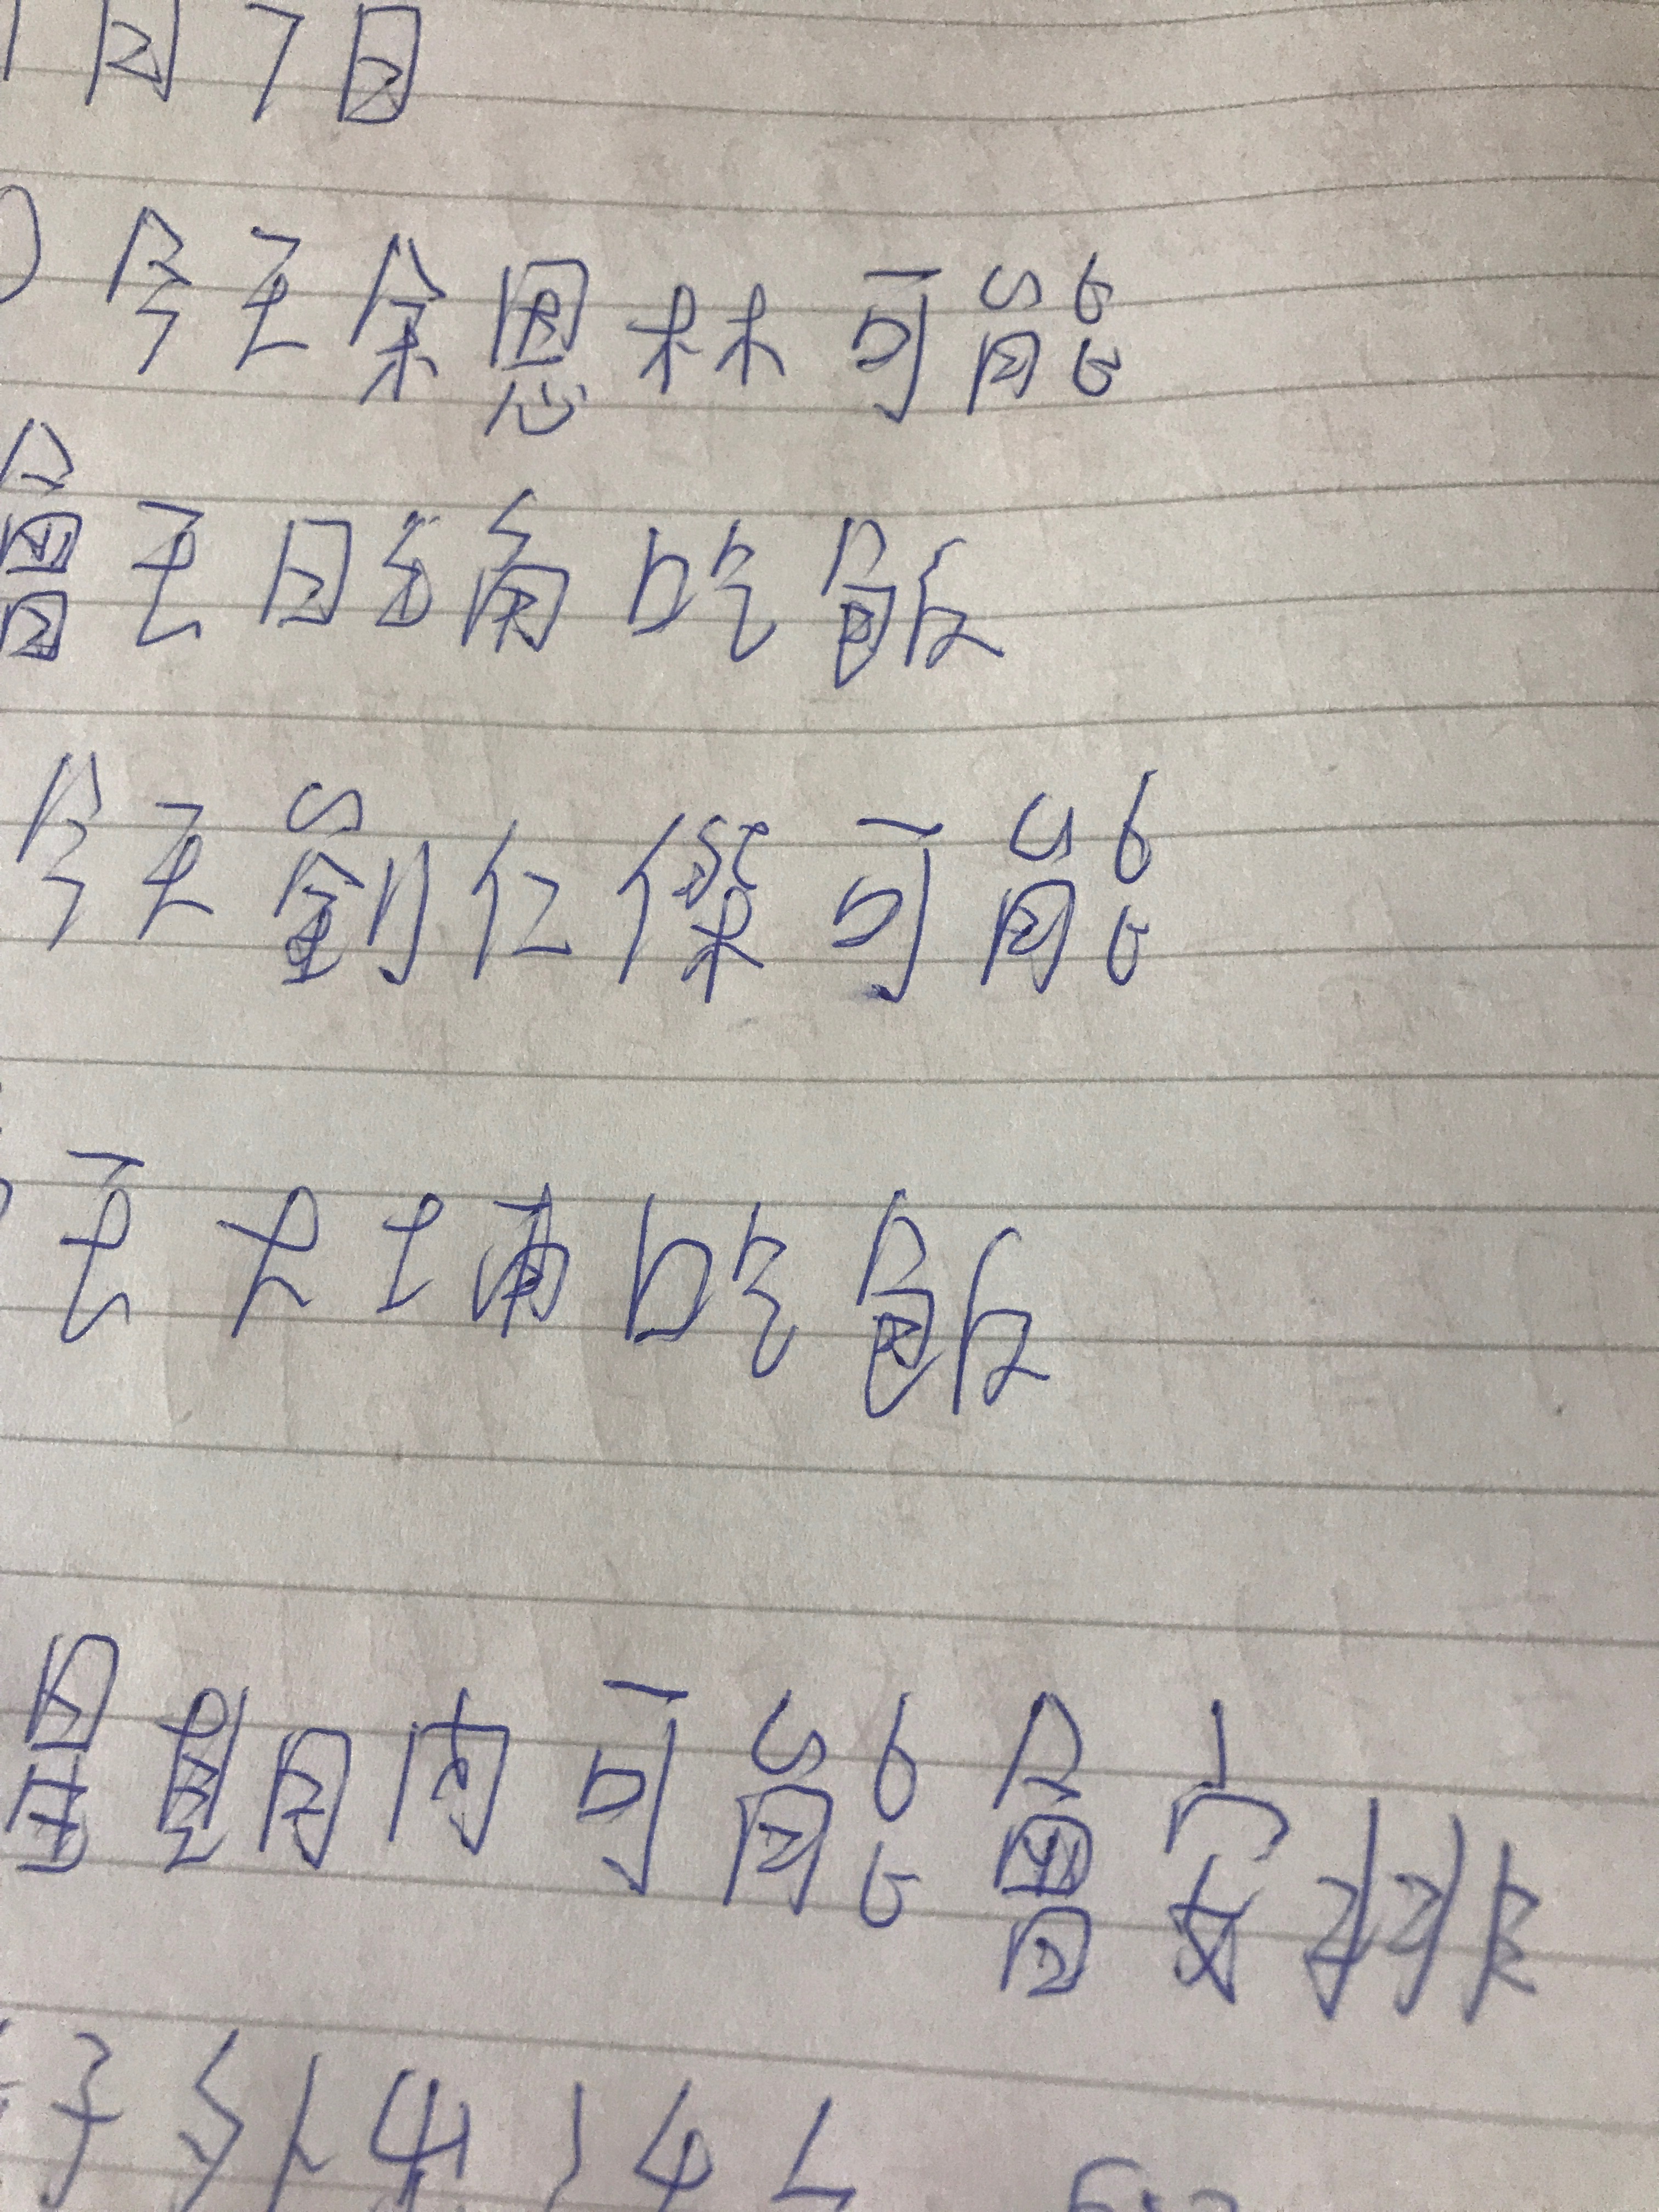 1月7日
今天余恩林可能
會去日式角吃飯
今天劉仁傑可能
去大埔吃飯
星期內可能會安排
子外出